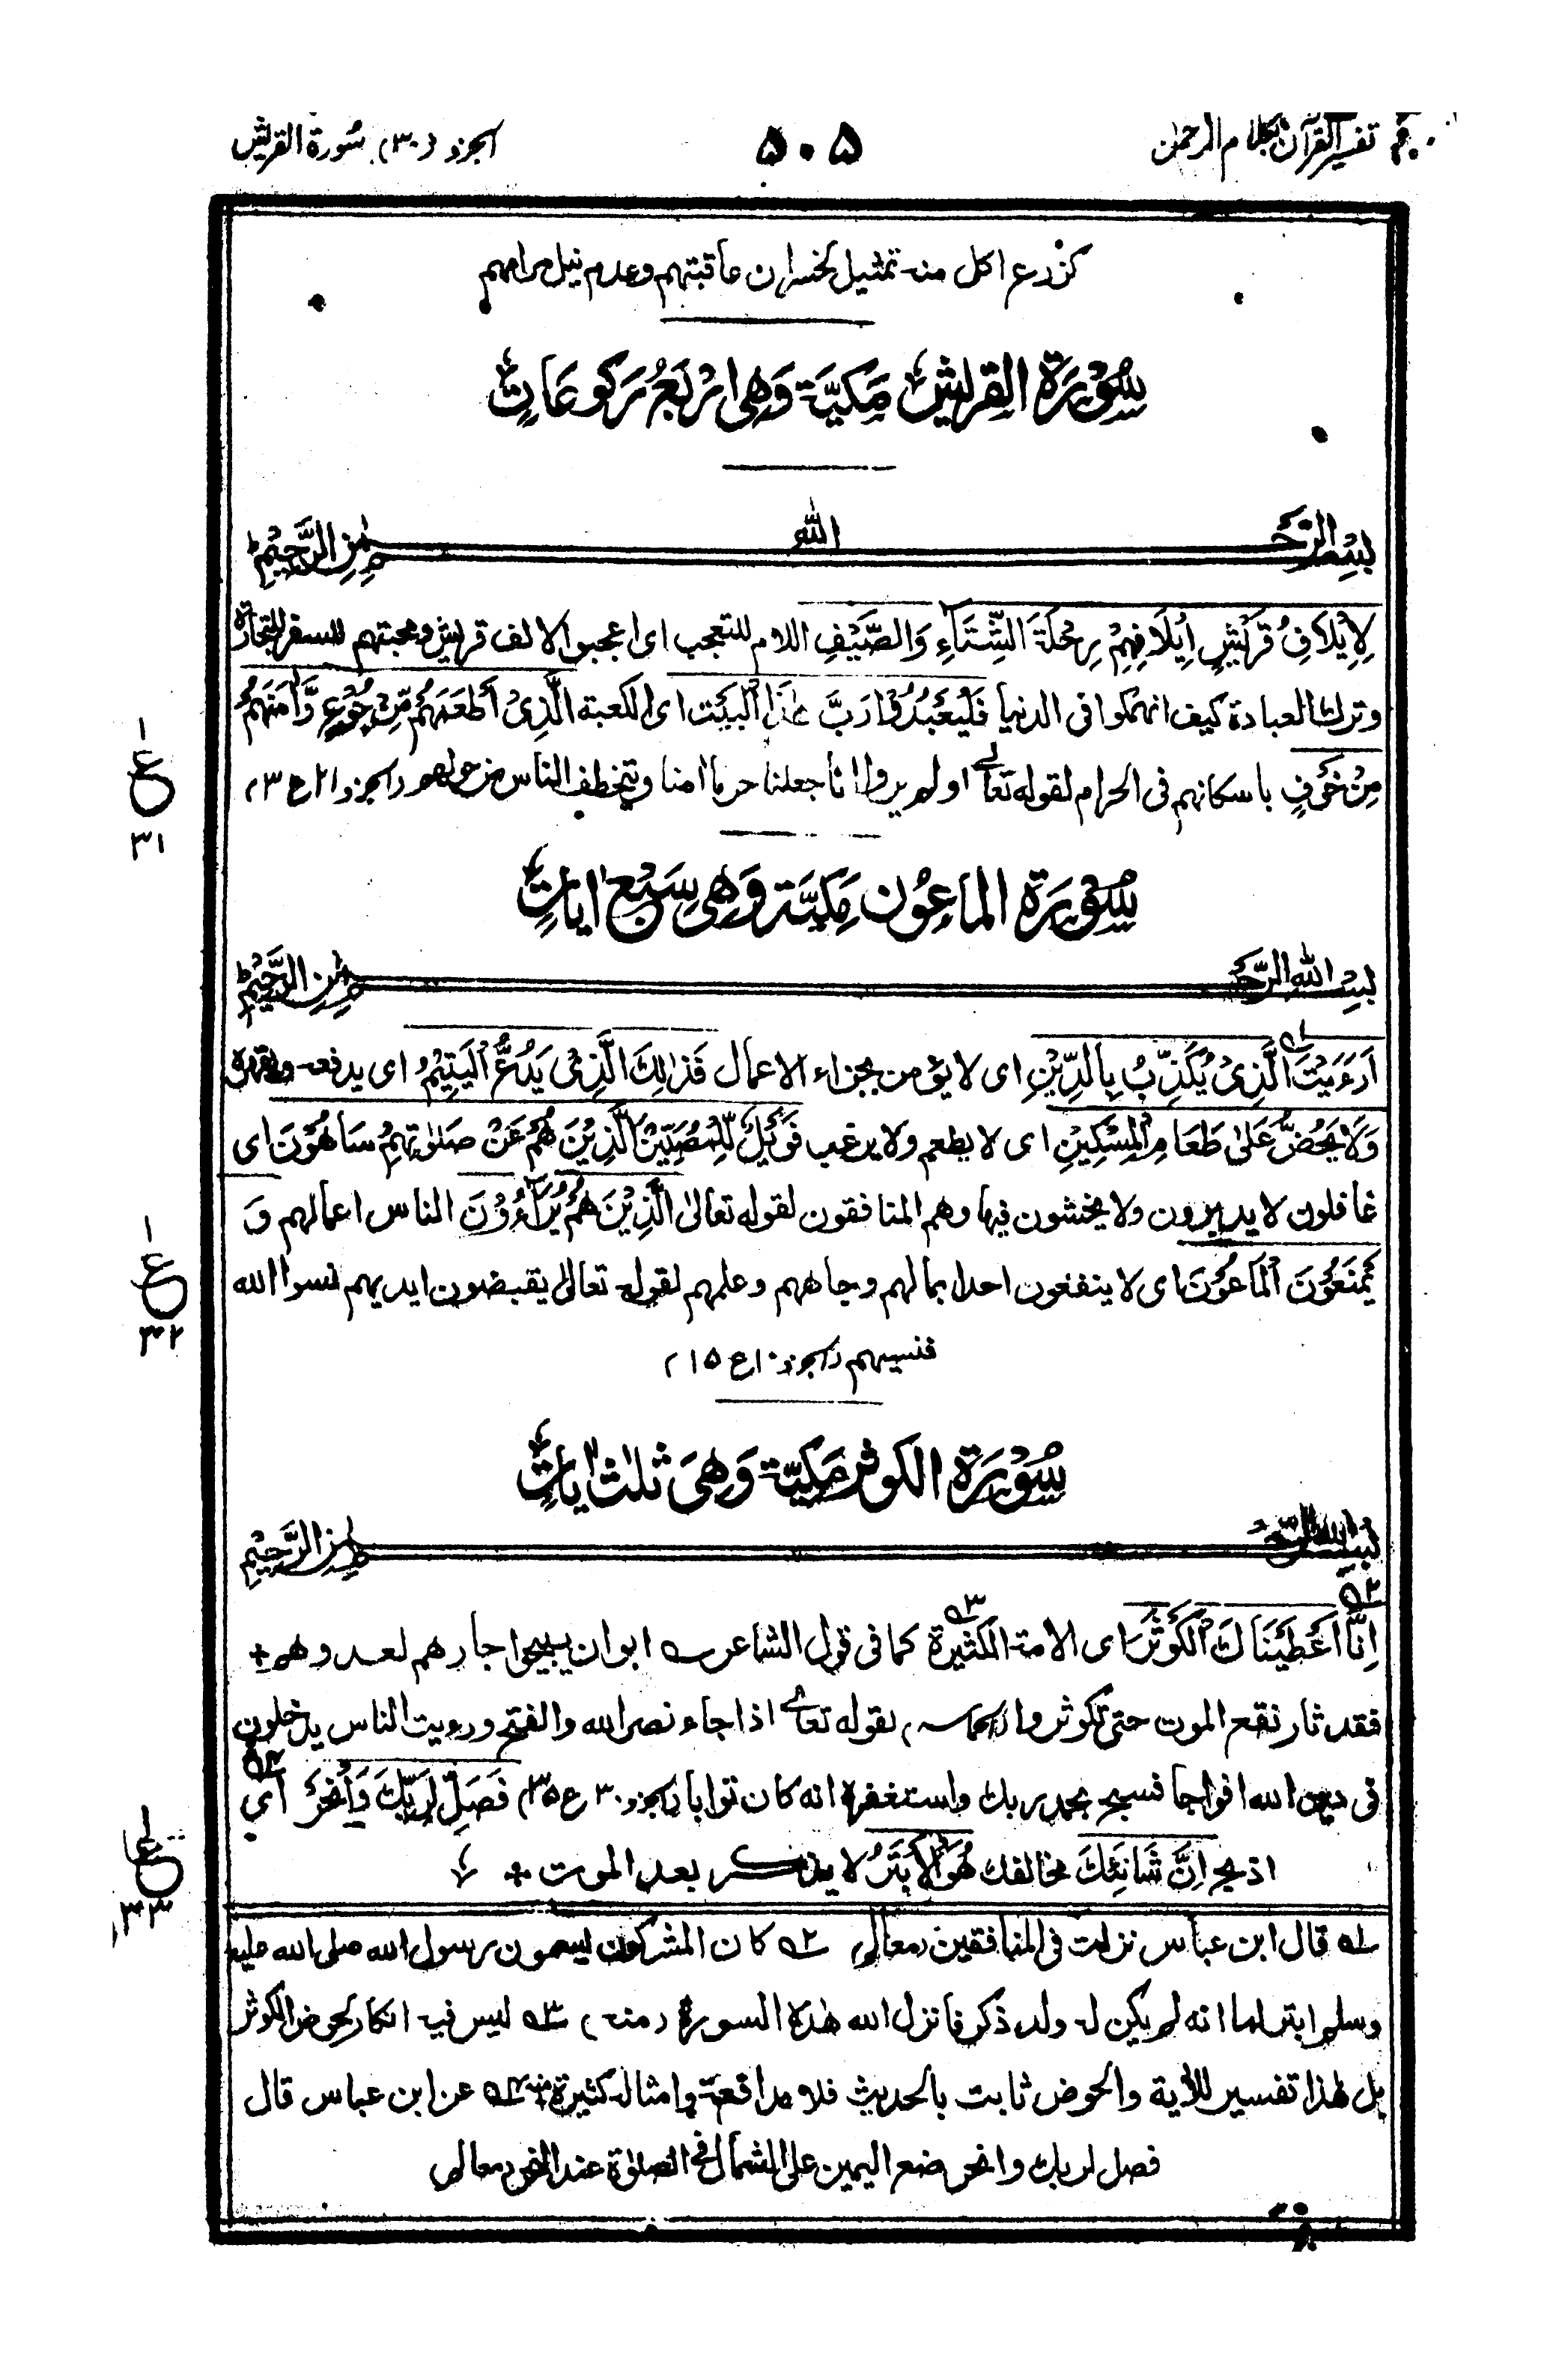 تفسير القرآن بكلام الرحمن ٥٠٥ الجزء (٣٠) سُورة القريش
كزرع اكل منه تمثيل لخسران عاقبتهم وعدم نيل مرامهم
سُوْرَةُ القريش مَكيَّة وَهِى اَرْبَعُ رَكوعَاتٍ
بِسْمِ اللّٰه الرَّحْمٰنِ الرَّحِيْمِ
لِاِيْلَافِ قُرَيْشٍ اِيْلَافِهِمْ رِحْلَةَ الشِّتَآءِ وَالصَّيْفِ اللام للتعجب اى اعجبوا لالف قريش ومحبتهم للسفر للتجارة
وترك العبادة كيف انهمكوا فى الدنيا فَلْيَعْبُدُوْا رَبَّ هٰذَا الْبَيْتِ اى الكعبة الَّذِىْ اَطْعَمَهُمْ مِّنْ جُوْعٍ وَّاٰمَنَهُمْ
مِنْ خَوْفٍ باسكانهم فى الحرام لقوله تعالے اولم يروا انا جعلنا حرما امنا ويتخطف الناس من حولهم (الجزء ٢١ ع ٣)
١
ع
٣١
سُوْرَةُ الماعُوْن مَكيَّة وَهِى سَبْع اٰيَاتٍ
بِسْمِ اللّٰهِ الرَّحْمٰنِ الرَّحِيْمِ
اَرَءَيْتَ الَّذِىْ يُكَذِّبُ بِالدِّيْنِ اى لا يؤمن بجزاء الاعمال فَذٰلِكَ الَّذِىْ يَدُعُّ الْيَتِيْمَ اى يدفعه ويقهره
وَلَا يَحُضُّ عَلٰى طَعَامِ الْمِسْكِيْنِ اى لا يطعم ولا يرغب فَوَيْلٌ لِّلْمُصَلِّيْنَ الَّذِيْنَ هُمْ عَنْ صَلٰوتِهِمْ سَاهُوْنَ اى
غافلون لا يدبرون ولا يخشون فيها وهم المنافقون لقوله تعالىٰ الَّذِيْنَ هُمْ يُرَآءُوْنَ الناس اعمالهم وَ
يَمْنَعُوْنَ الْمَاعُوْنَ اى لا ينفعون احدا بمالهم وجاههم وعلمهم لقوله تعالىٰ يقبضون ايديهم نسوا الله
فنسيهم (الجزء ١٠ ع ١٥)
١
ع
٣٢
سُوْرَةُ الكوثر مَكيّة وَهِىَ ثلٰث اٰيَاتٍ
بِسْمِ اللّٰهِ الرَّحْمٰنِ الرَّحِيْمِ
اِنَّا اَعْطَيْنَاكَ الْكَوْثَرَ اى الامة الكثيرة كما فى قول الشاعر ؎ ابوا ان يبيحوا جارهم لعدوهم +
فقد ثار نقع الموت حتى تكوثروا (حماسه) لقوله تعالے اذا جاء نصر الله والفتح ورءيت الناس يدخلون
فى دين الله افواجا فسبح بحمد ربك واستغفره انه كان توابا (الجزء ٣٠ ع ٣٥) فَصَلِّ لِرَبِّكَ وَانْحَرْ اى
اذبح اِنَّ شَانِئَكَ مخالفك هُوَ الْاَبْتَرُ لا يذكر بعد الموت +
١
ع
٣٣
؎١ قال ابن عباس نزلت فى المنافقين (معالم) ؎٢ كان المشركون يسمون رسول الله صلى الله عليه
وسلم ابتر لما انه لم يكن له ولد ذكر فانزل الله هٰذه السورة (منه) ؎٣ ليس فيه انكار لحوض الكوثر
بل هٰذا تفسير للاٰية والحوض ثابت بالحديث فلا مدافعة وامثاله كثيرة منه ؎٤ عن ابن عباس قال
فصل لربك وانحر وضع اليمين على الشمال فى الصلٰوة عند النحر (معالم)